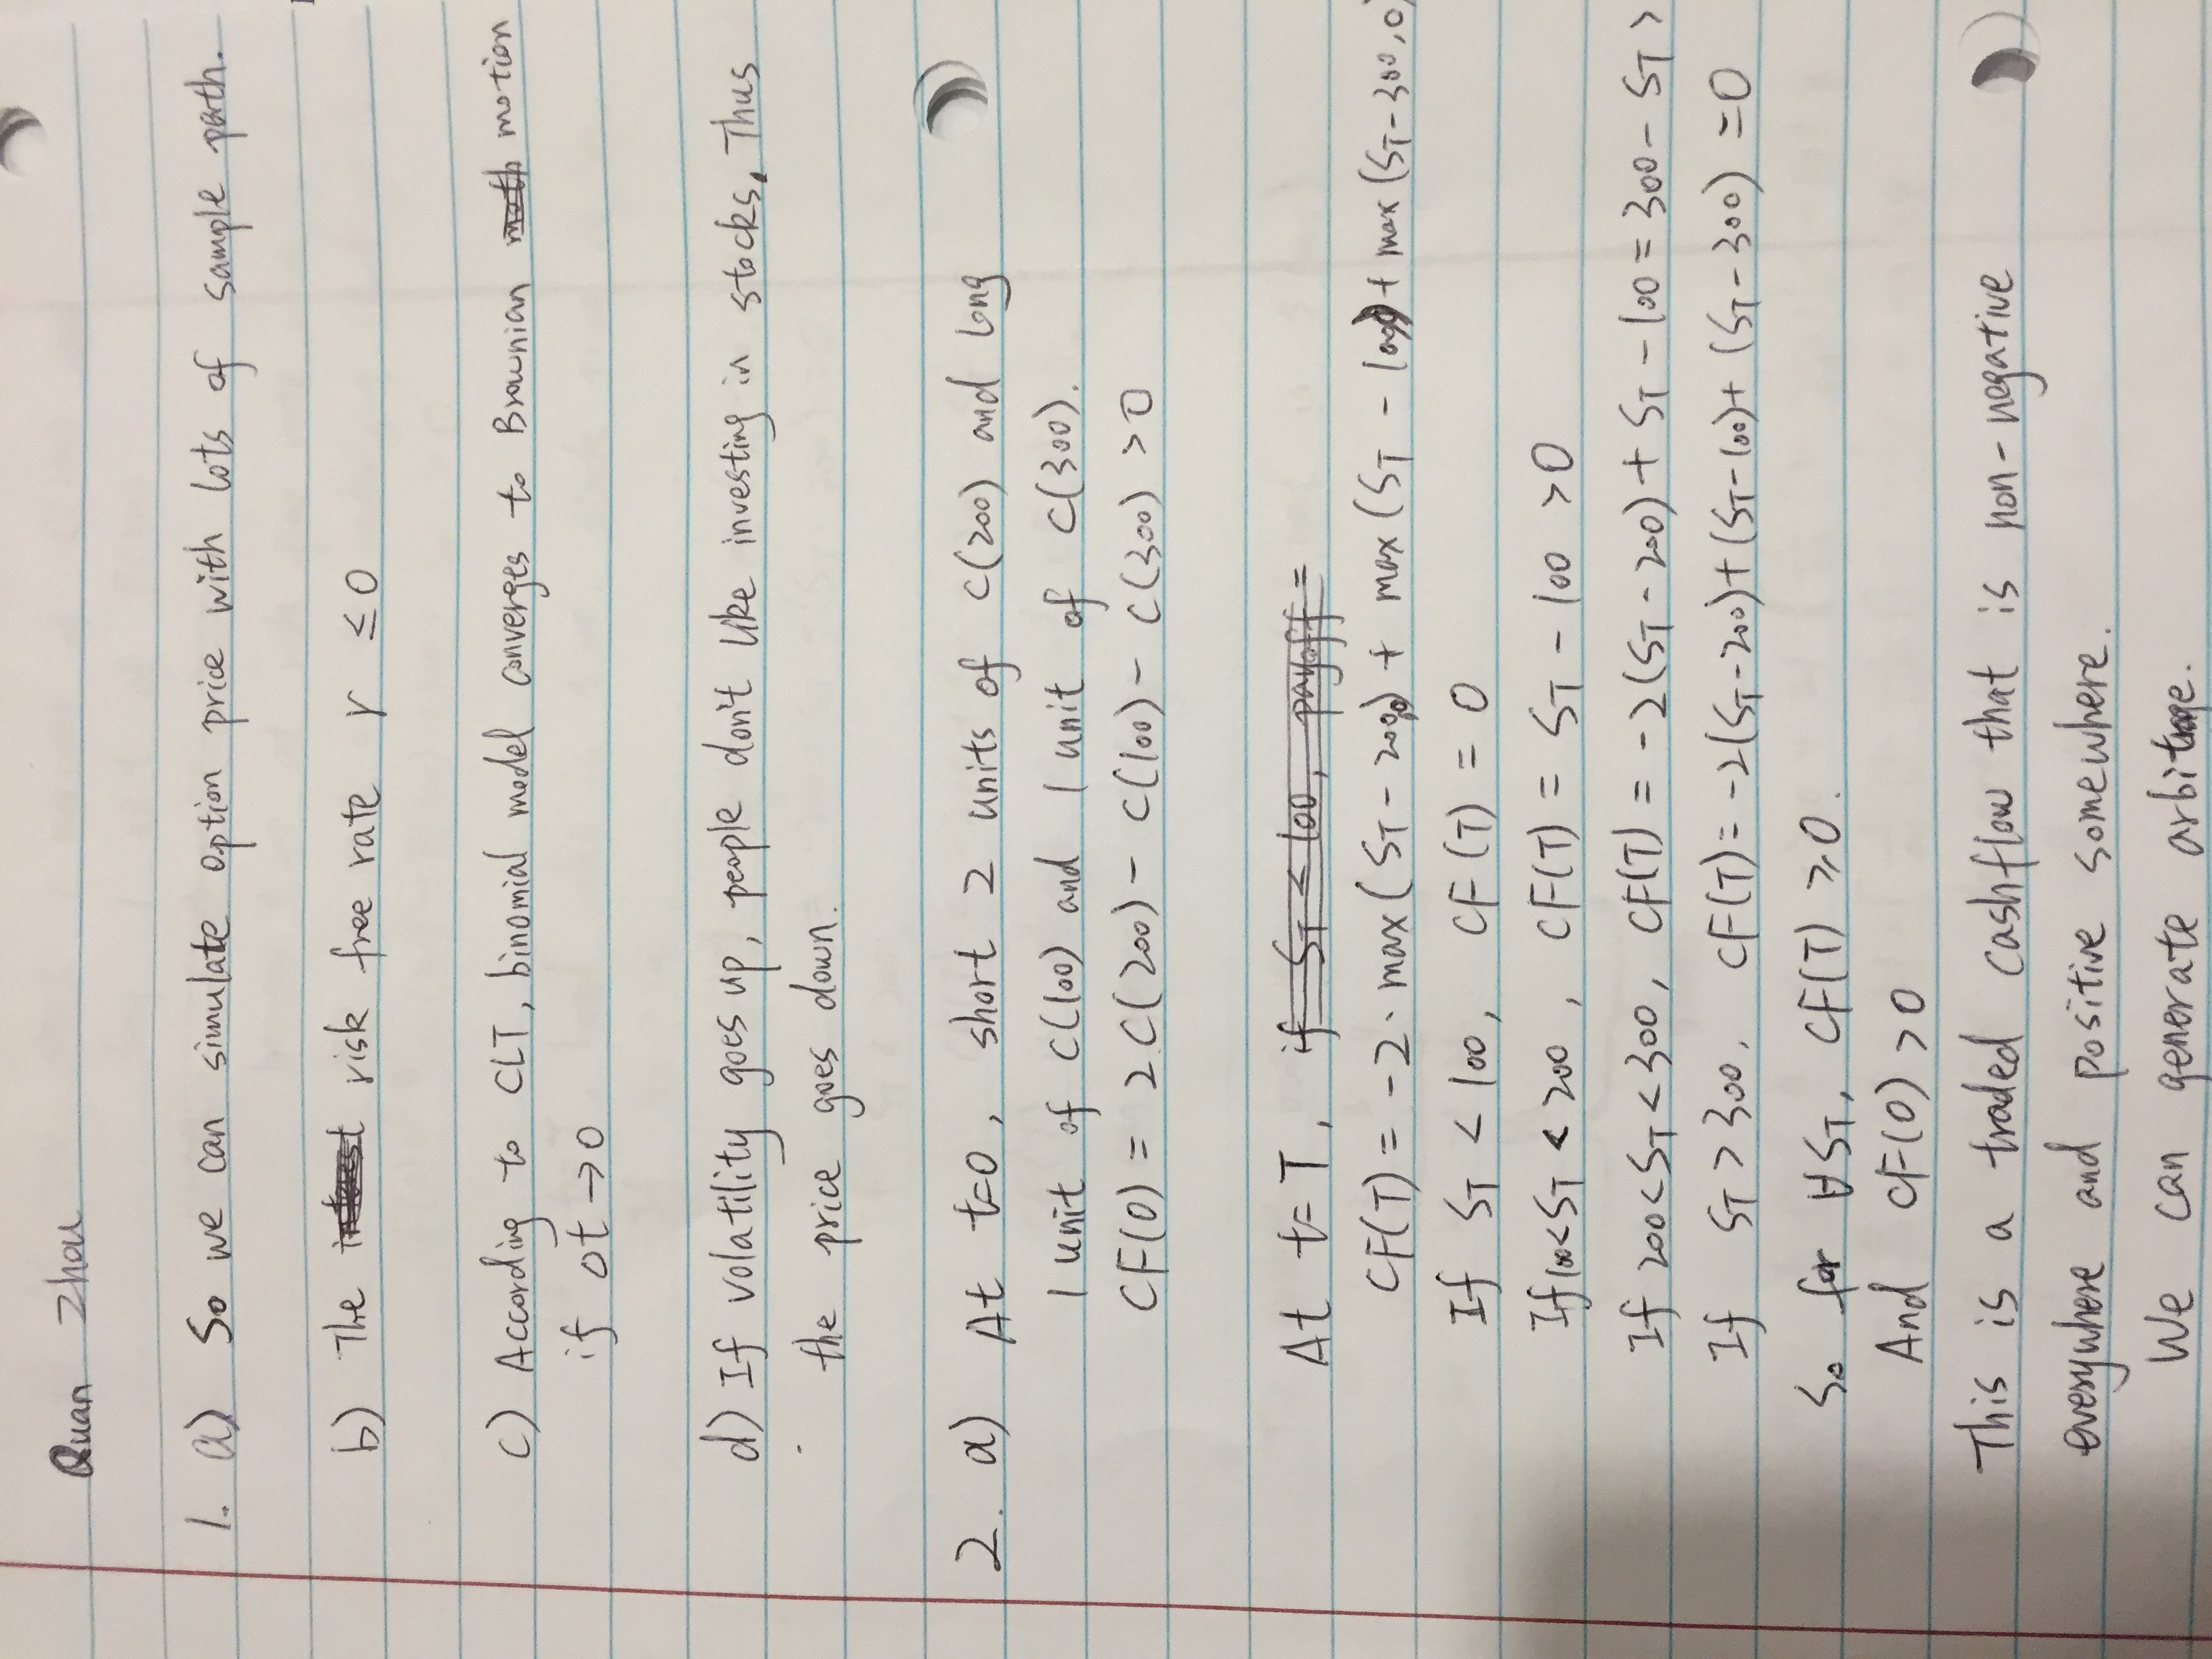 Quan Zhou
1. a) So we can simulate option price with lots of sample path.
b) The interest risk free rate r ≤ 0
c) According to CLT, binomial model converges to Brownian moth motion
if Δt → 0
d) If volatility goes up, people don't like investing in stocks. Thus
the price goes down.
2. a) At t=0, short 2 units of C(200) and long
1 unit of C(100) and 1 unit of C(300).
CF(0) = 2C(200) - C(100) - C(300) > 0
At t=T, if S_T < 100, payoff =
CF(T) = -2·max(S_T - 200,0) + max(S_T - 100,0) + max(S_T - 300,0)
If S_T < 100, CF(T) = 0
If 100 < S_T < 200, CF(T) = S_T - 100 > 0
If 200 < S_T < 300, CF(T) = -2(S_T - 200) + S_T - 100 = 300 - S_T >
If S_T > 300, CF(T) = -2(S_T - 200) + (S_T - 100) + (S_T - 300) = 0
So for ∀S_T, CF(T) ≥ 0.
And CF(0) > 0
This is a traded cashflow that is non-negative
everywhere and positive somewhere.
We can generate arbitrage.